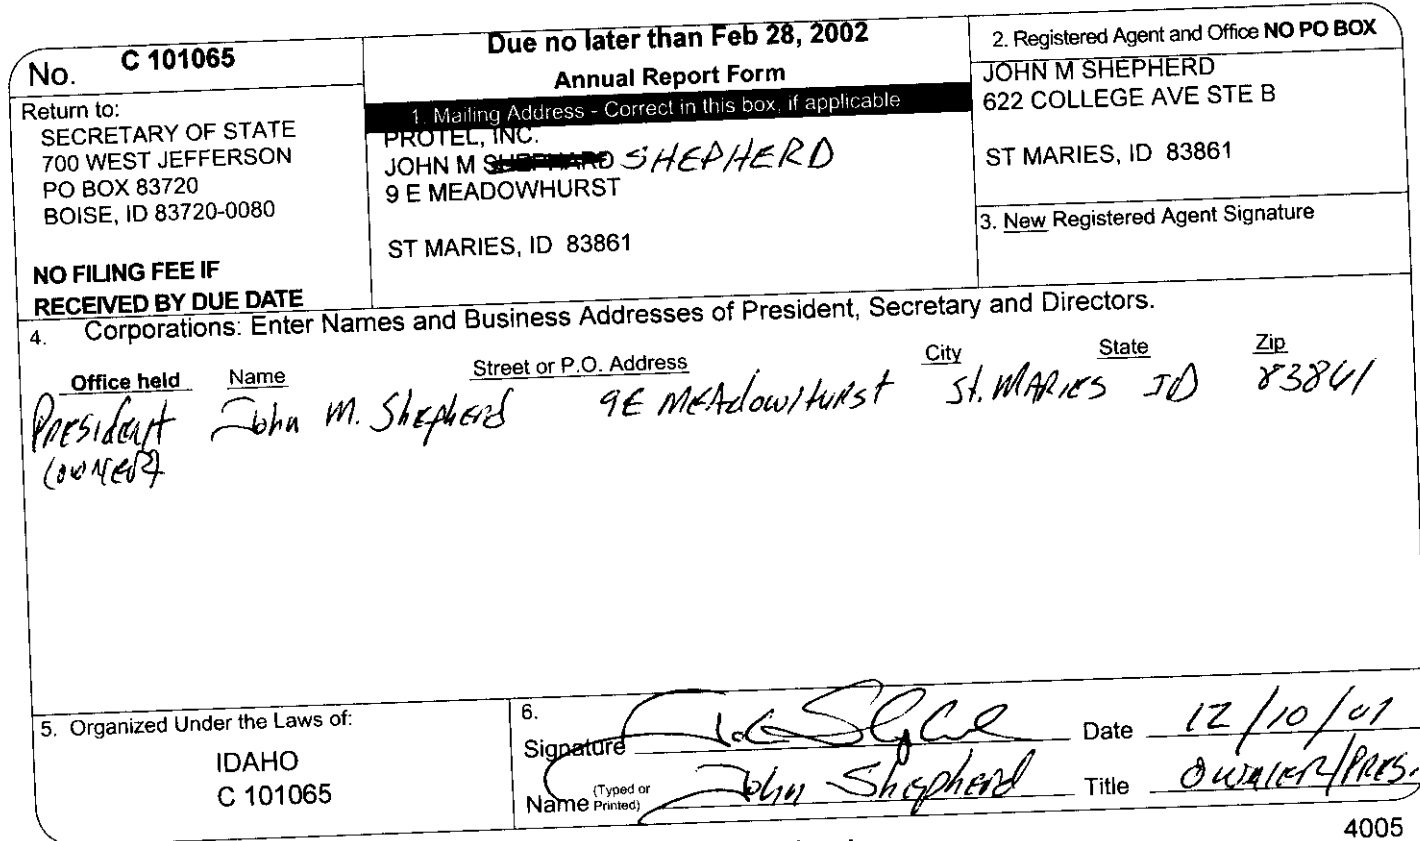 No. C 101065
Return to:
SECRETARY OF STATE
700 WEST JEFFERSON
PO BOX 83720
BOISE, ID 83720-0080
NO FILING FEE IF
RECEIVED BY DUE DATE
Due no later than Feb 28, 2002
Annual Report Form
1. Mailing Address - Correct in this box, if applicable
PROTEL, INC.
JOHN M SHEPHERD
9 E MEADOWHURST
ST MARIES, ID 83861
2. Registered Agent and Office NO PO BOX
JOHN M SHEPHERD
622 COLLEGE AVE STE B
ST MARIES, ID 83861
3. New Registered Agent Signature
4. Corporations: Enter Names and Business Addresses of President, Secretary and Directors.
Office held Name Street or P.O. Address City State Zip
President John M. Shepherd 9E Meadowhurst St. Maries ID 83861
(owner)
5. Organized Under the Laws of:
IDAHO
C 101065
6.
Signature Date 12/10/01
Name (Typed or Printed) John Shepherd Title Owner/Pres.
4005